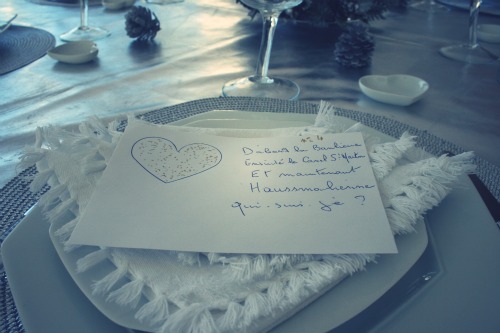 Débute la Banlieue
Ensuite le Canal St Martin
Et maintenant
Haussmannienne
qui - suis - je ?